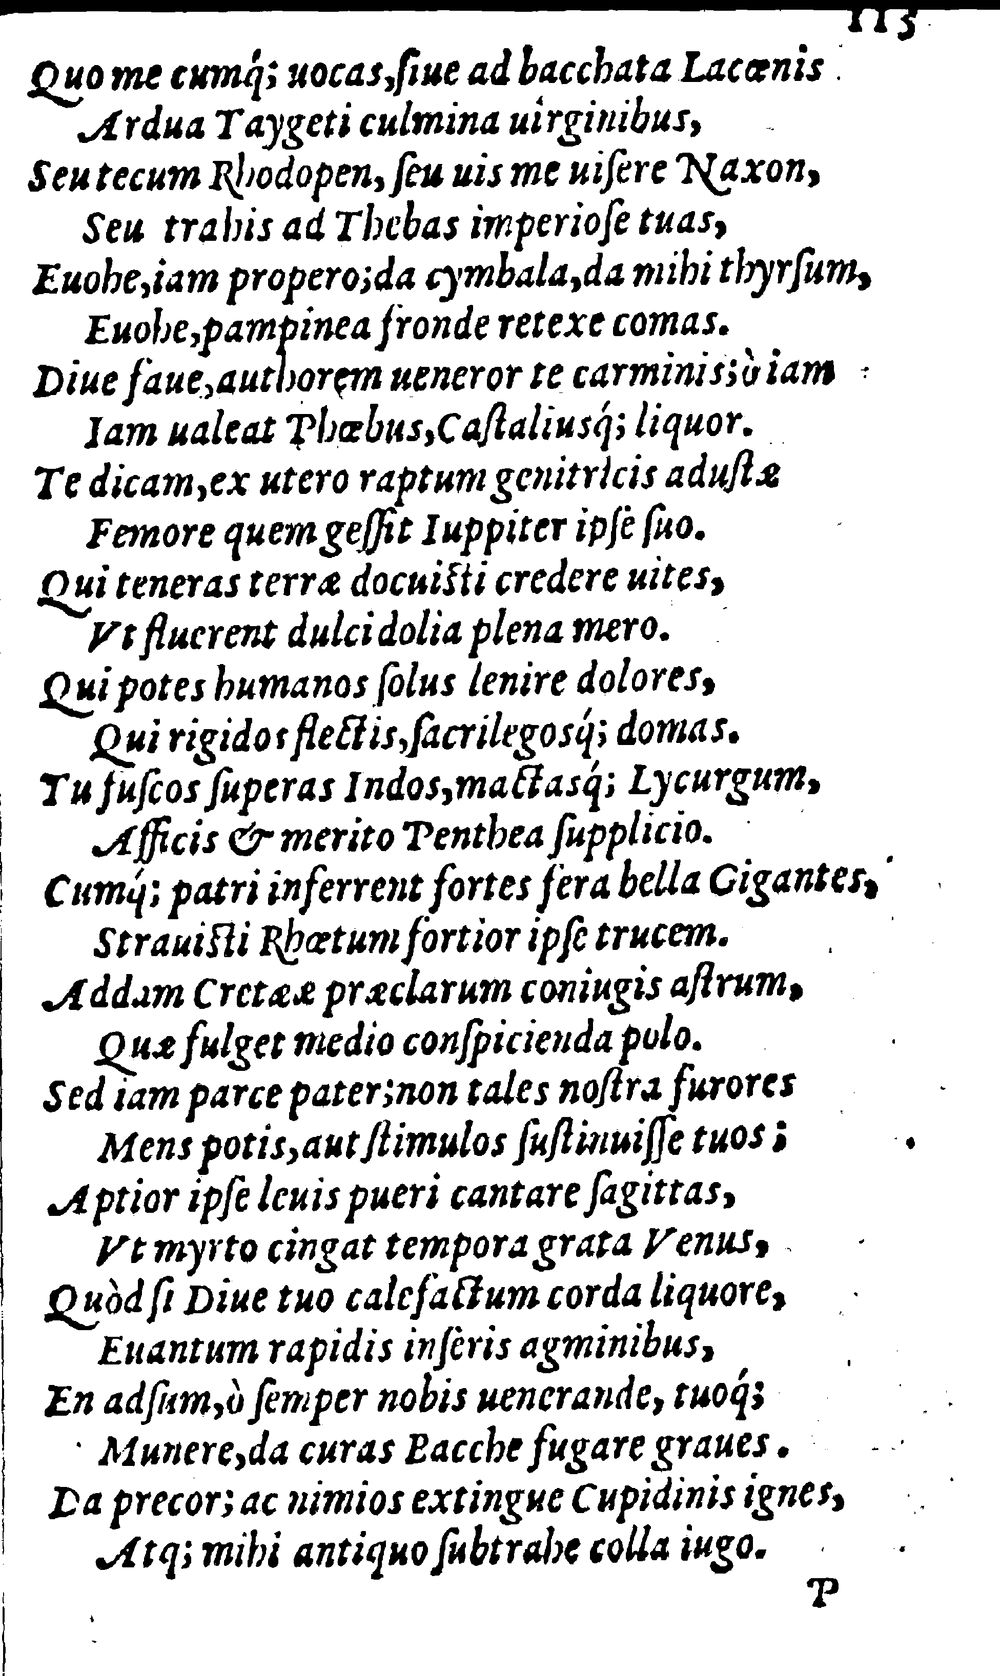 113
Quo me cumq́; uocas,ſiue ad bacchata Lacœnis
Ardua Taygeti culmina uirginibus,
Seu tecum Rhodopen, ſeu uis me uiſere Naxon,
Seu trahis ad Thebas imperioſe tuas,
Euohe,iam propero;da cymbala,da mihi thyrſum,
Euohe,pampinea fronde retexe comas.
Diue faue,authorem ueneror te carminis;ò iam
Iam ualeat Phœbus,Caſtaliusq́; liquor.
Te dicam,ex utero raptum genitricis aduſtæ
Femore quem geſſit Iuppiter ipſe ſuo.
Qui teneras terræ docuiſti credere uites,
Vt fluerent dulci dolia plena mero.
Qui potes humanos ſolus lenire dolores,
Qui rigidos flectis,ſacrilegosq́; domas.
Tu fuſcos ſuperas Indos,mactasq́; Lycurgum,
Afficis & merito Penthea ſupplicio.
Cumq́; patri inferrent fortes fera bella Gigantes,
Strauiſti Rhœtum fortior ipſe trucem.
Addam Cretææ præclarum coniugis aſtrum,
Quæ fulget medio conſpicienda polo.
Sed iam parce pater;non tales noſtra furores
Mens potis,aut ſtimulos ſuſtinuiſſe tuos;
Aptior ipſe leuis pueri cantare ſagittas,
Vt myrto cingat tempora grata Venus,
Quòd ſi Diue tuo calefactum corda liquore,
Euantum rapidis inſeris agminibus,
En adſum,ò ſemper nobis uenerande, tuoq́;
Munere,da curas Bacche fugare graues.
Da precor; ac nimios extingue Cupidinis ignes,
Atq; mihi antiquo ſubtrahe colla iugo.
P